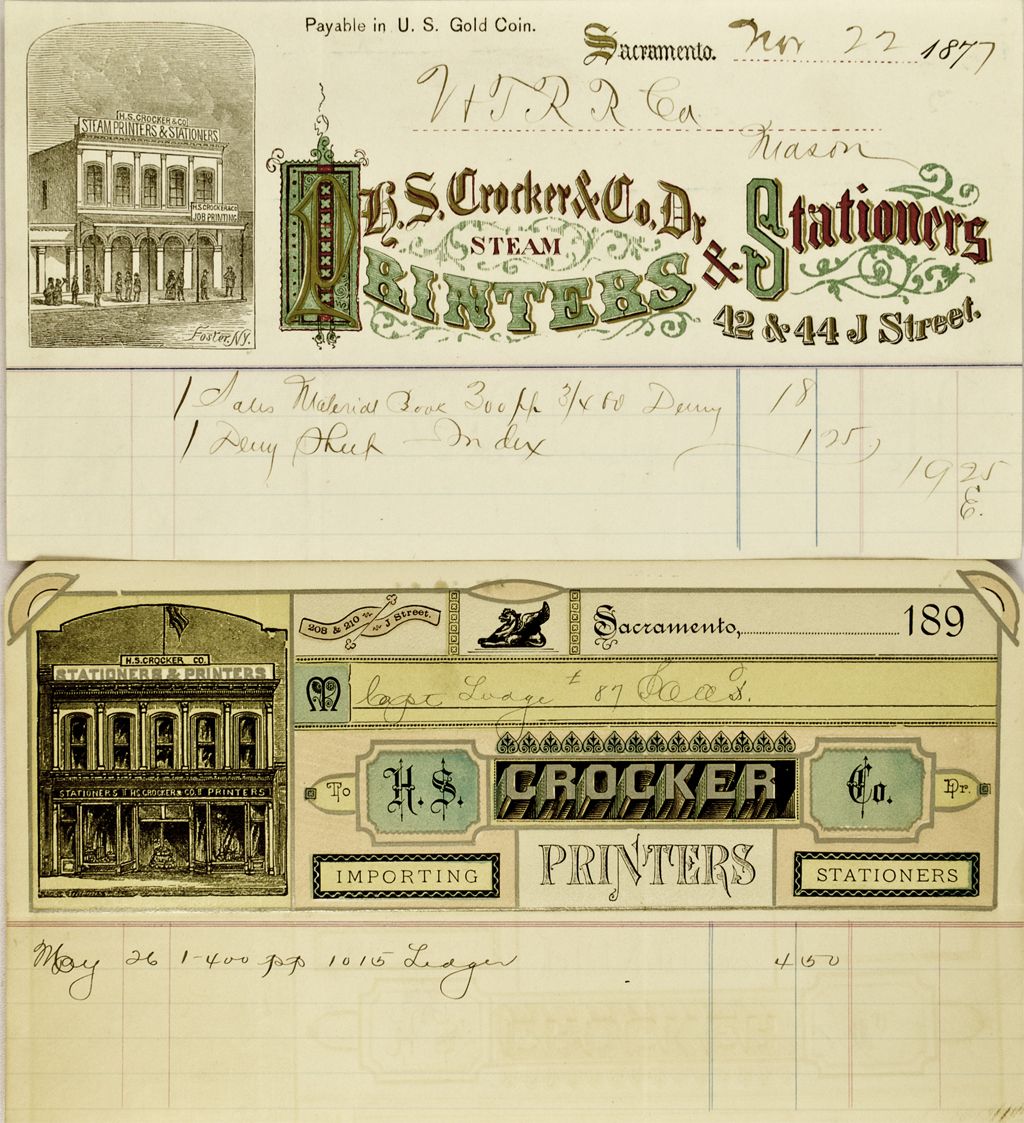 Payable in U. S. Gold Coin.
Sacramento. Nov 22 1877
V & T. R R Co
Mason
H.S. CROCKER & CO
STEAM PRINTERS & STATIONERS
H.S. CROCKER & CO
JOB PRINTING
Foster, NY.
H. S. Crocker & Co. Dr
STEAM
PRINTERS & Stationers
42 & 44 J Street.
1 Sales Material Book 300 pp 3/4 Demy 18
1 Demy Sheet Index 1 25
19 25
E.
208 & 210 J Street.
Sacramento, 189
H.S. CROCKER CO.
STATIONERS & PRINTERS
M Capt Lodge # 87
STATIONERS H.S. CROCKER & CO. PRINTERS
To H. S. CROCKER Co. Dr.
IMPORTING PRINTERS STATIONERS
May 26 1-400 pp 1015 Ledger 4 50